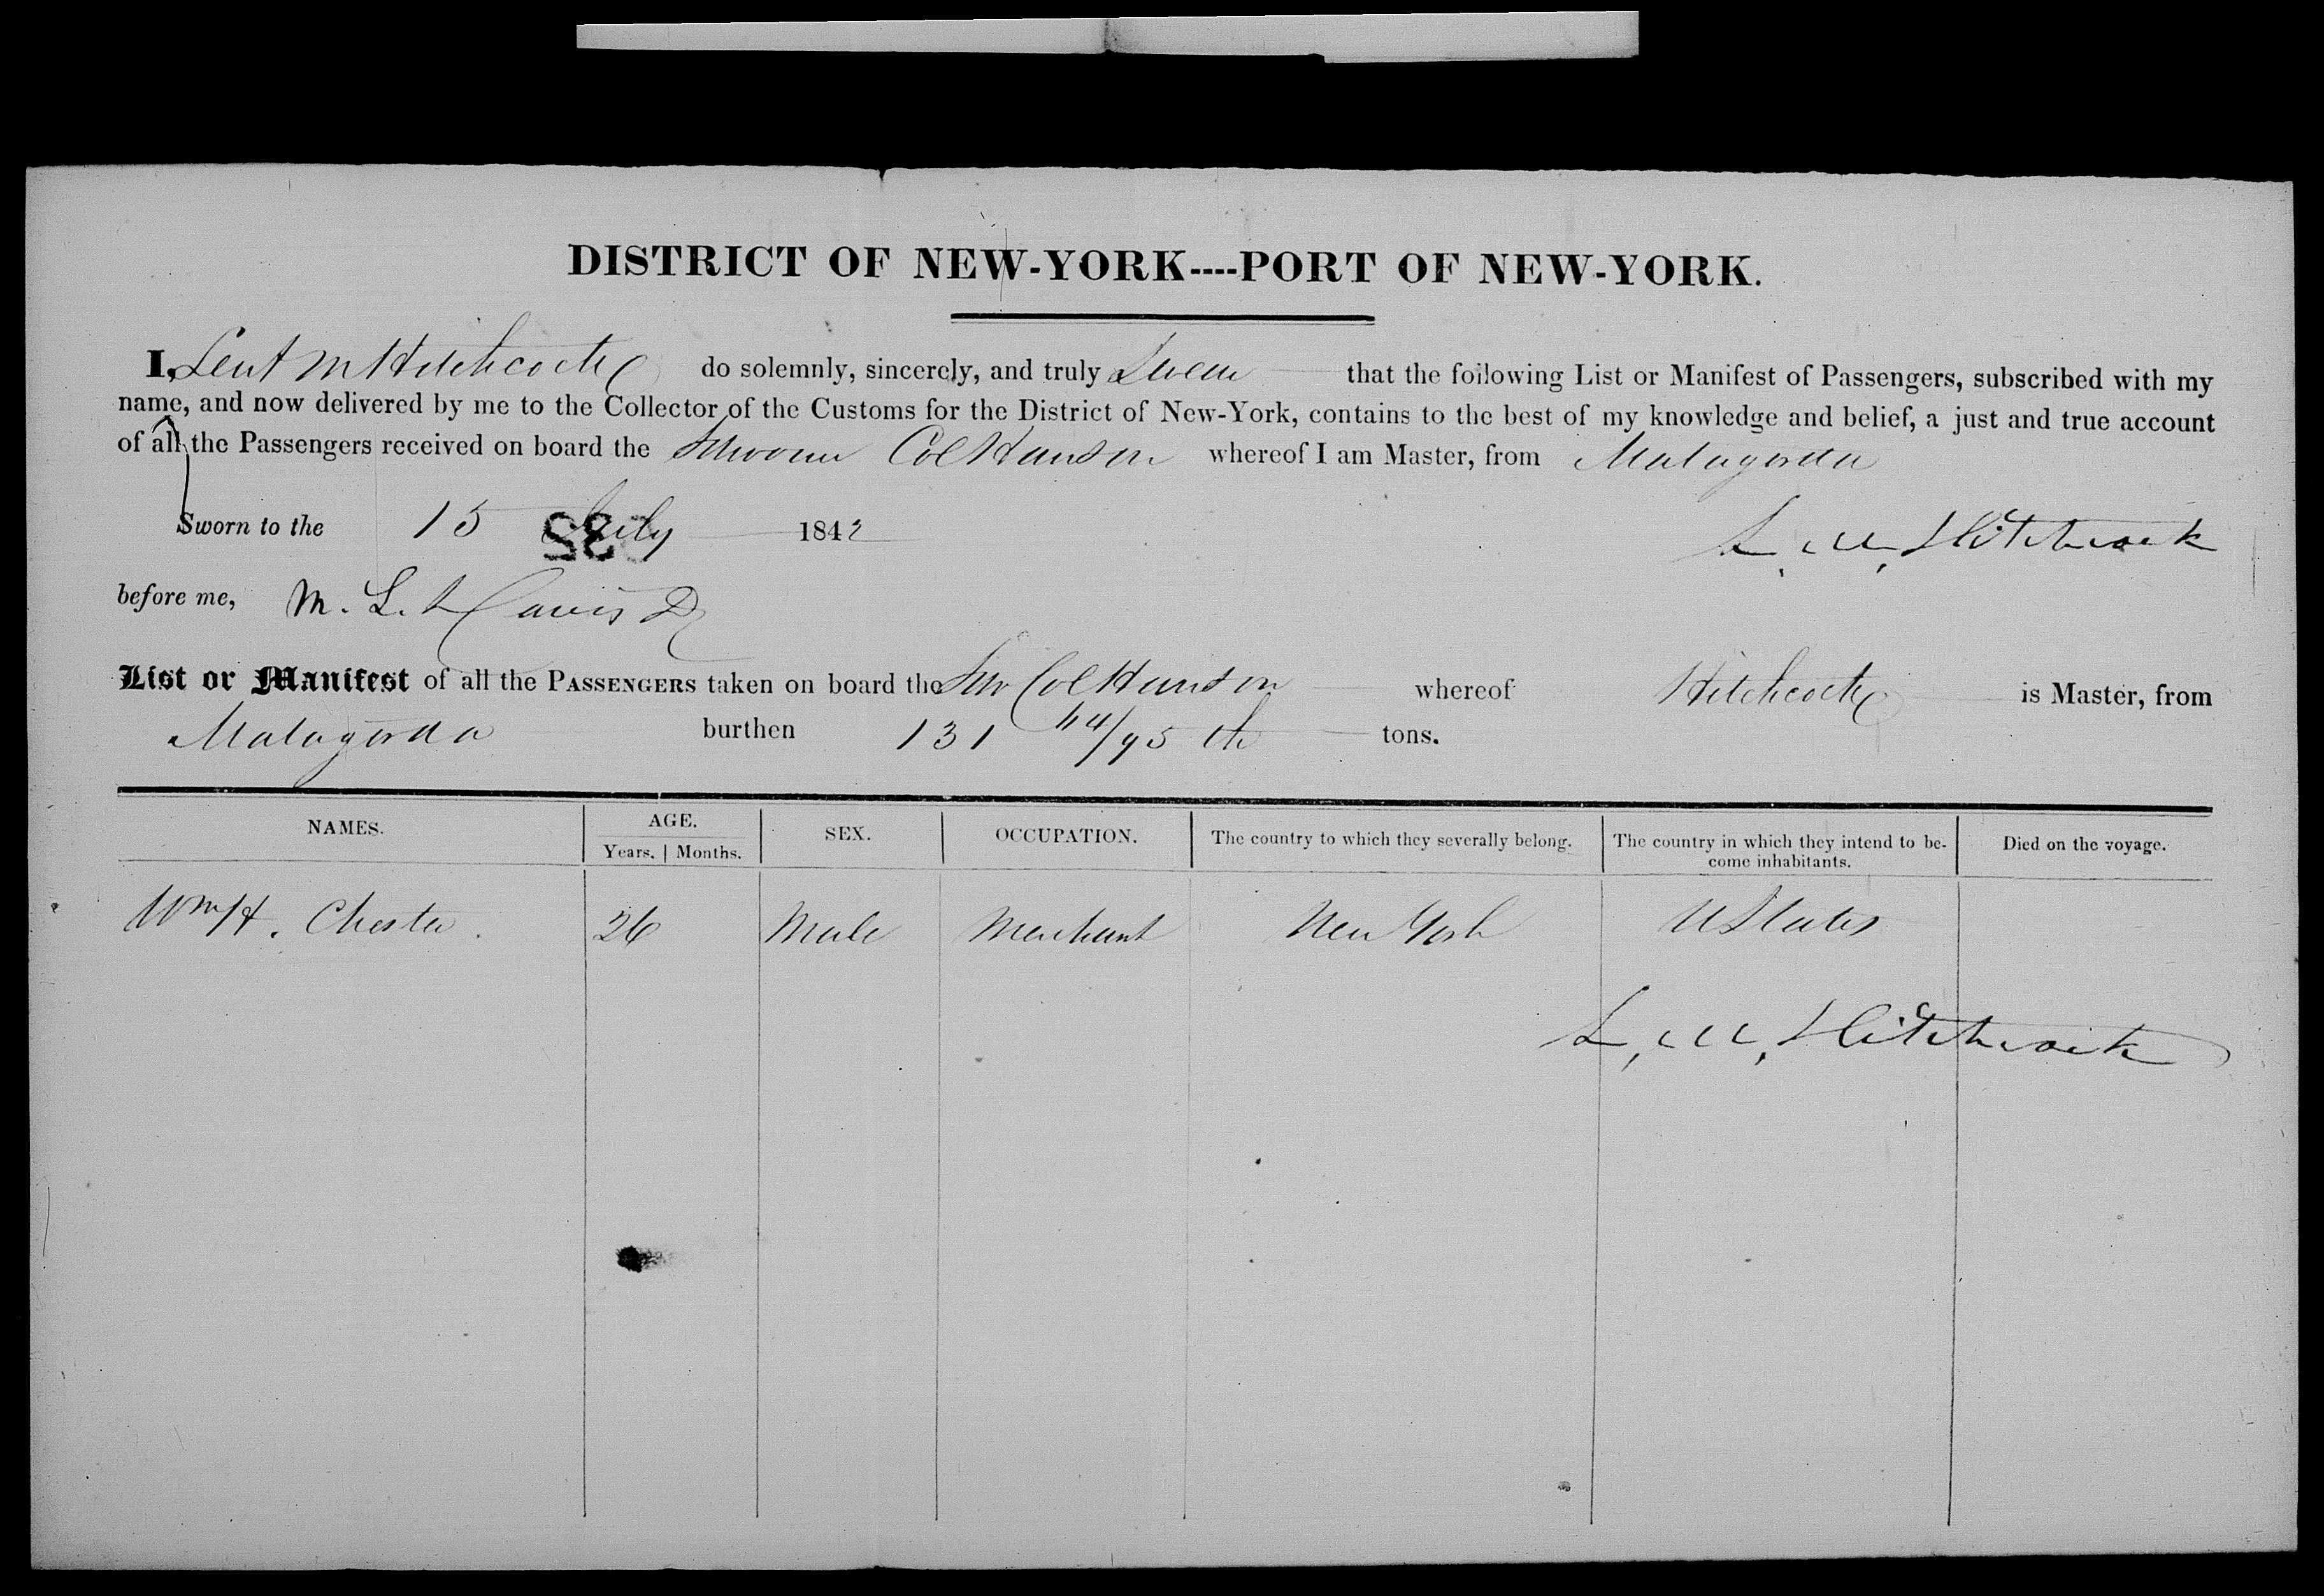 DISTRICT OF NEW-YORK----PORT OF NEW-YORK.
I, Lent M Hitchcock do solemnly, sincerely, and truly Swear that the following List or Manifest of Passengers, subscribed with my
name, and now delivered by me to the Collector of the Customs for the District of New-York, contains to the best of my knowledge and belief, a just and true account
of all the Passengers received on board the Schooner Col Hanson whereof I am Master, from Matagorda
Sworn to the 15 July 1842 L. M. Hitchcock
35
before me, M. L. Davis
List or Manifest of all the PASSENGERS taken on board the Schr Col Hanson whereof Hitchcock is Master, from
Matagorda burthen 131 44/95 th tons.
NAMES. AGE. SEX. OCCUPATION. The country to which they severally belong. The country in which they intend to be-
Years. | Months. come inhabitants. Died on the voyage.
Wm H. Chester. 26 Male Merchant New York U States
L. M. Hitchcock